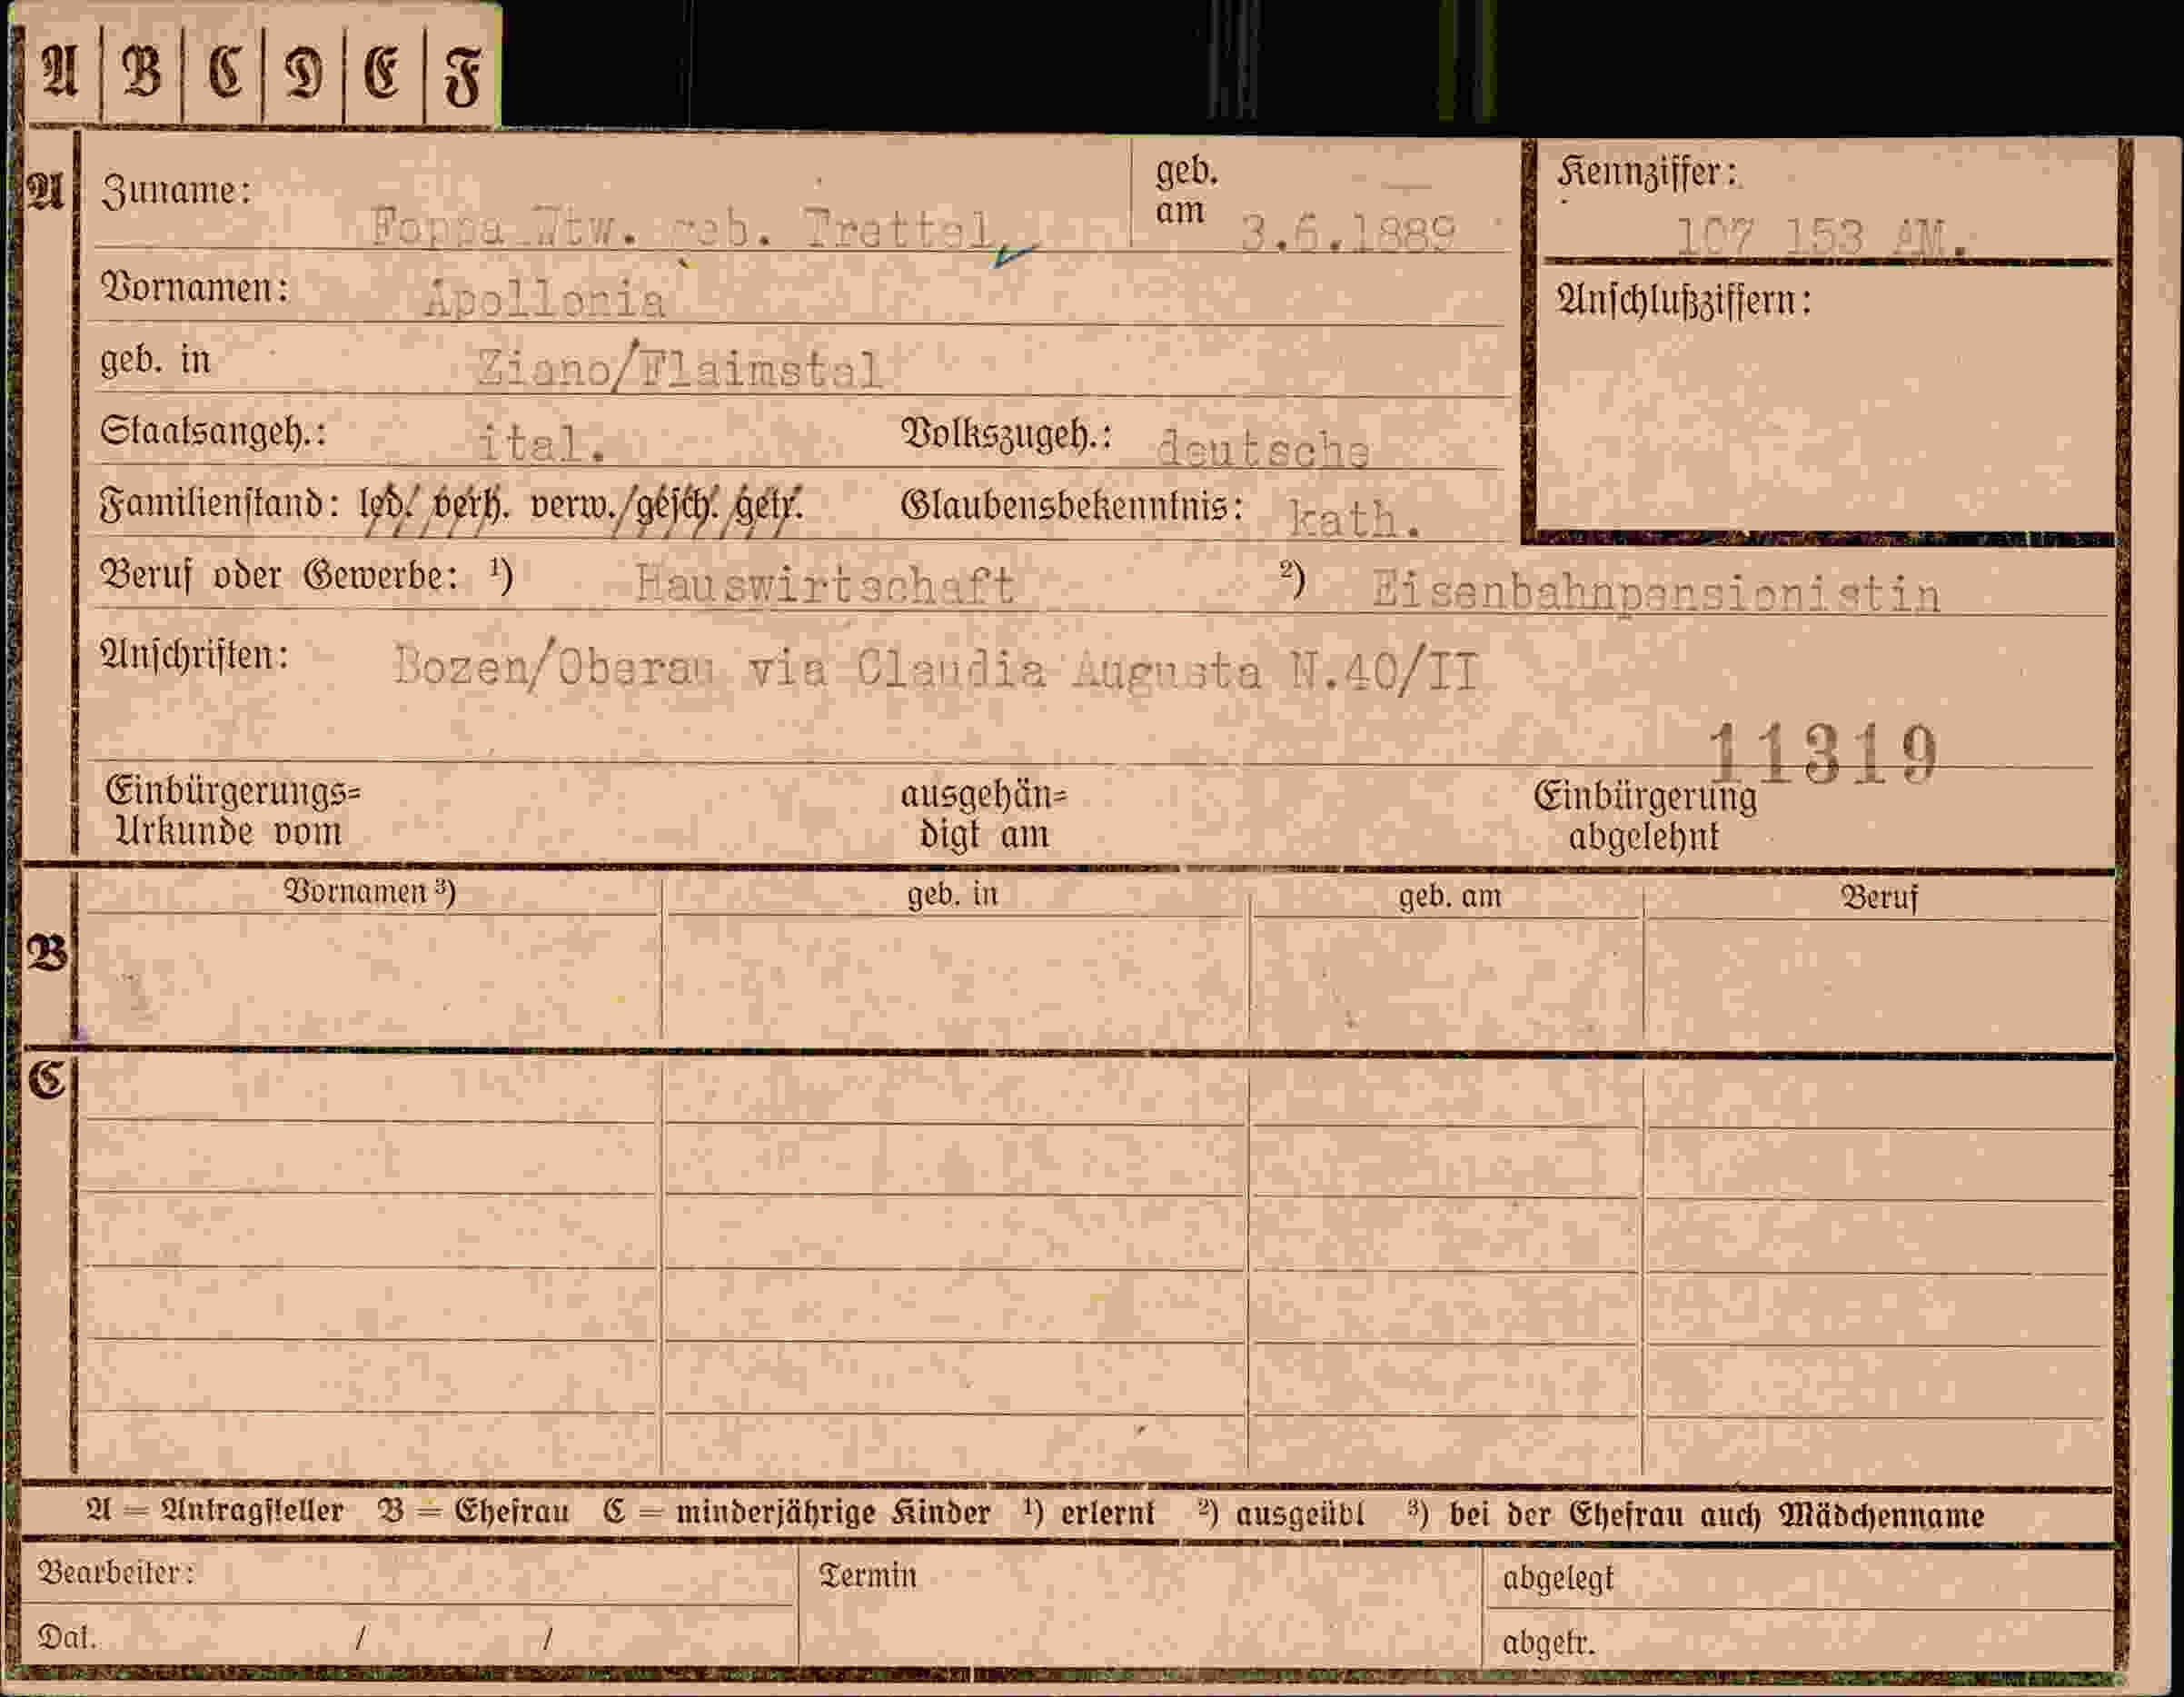 A B C D E F
A Zuname: Foppa Wtw. geb. Trettel, geb. am 3.6.1889
Kennziffer: 107 153 AM.
Vornamen: Apollonia
Anschlußziffern:
geb. in Ziano/Flaimstal
Staatsangeh.: ital. Volkszugeh.: deutsche
Familienstand: led./ verh. verw./gesch. getr. Glaubensbekenntnis: kath.
Beruf oder Gewerbe: ¹) Hauswirtschaft ²) Eisenbahnpensionistin
Anschriften: Bozen/Oberau via Claudia Augusta N.40/II
11319
Einbürgerungs= Urkunde vom ausgehän= digt am Einbürgerung abgelehnt
Vornamen ³) geb. in geb. am Beruf
B
C
A = Antragsteller B = Ehefrau C = minderjährige Kinder ¹) erlernt ²) ausgeübt ³) bei der Ehefrau auch Mädchenname
Bearbeiter: Termin abgelegt
Dat. / / abgetr.